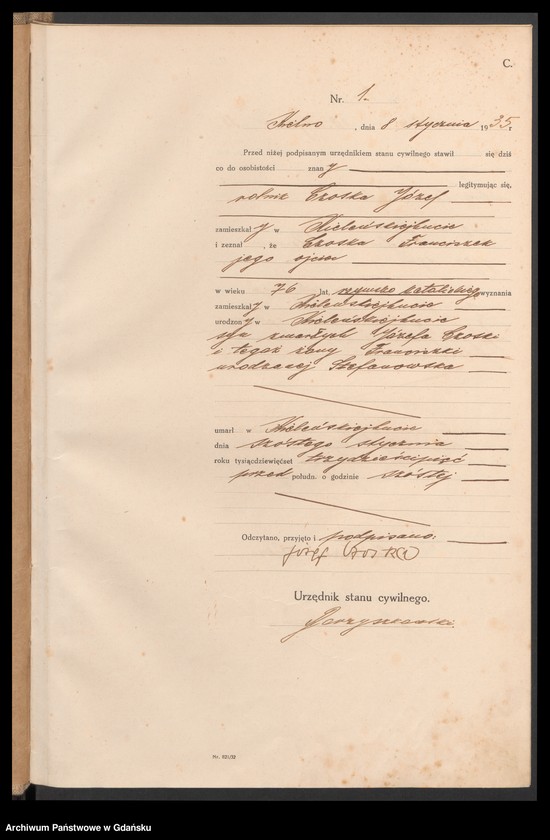 C.
Nr. 1.
Kielno, dnia 8 stycznia 1935 r
Przed niżej podpisanym urzędnikiem stanu cywilnego stawił się dziś
co do osobistości znany
legitymując się,
rolnik Czoska Józef
zamieszkały w Kieleńskiejhucie
i zeznał, że Czoska Franciszek
jego ojciec
w wieku 76 lat, rzymsko katolickiego wyznania
zamieszkały w Kieleńskiejhucie
urodzony w Kieleńskiejhucie
syn zmarłych Józefa Czoski
i tegoż żony Franciszki
urodzonej Stefanowska
umarł w Kieleńskiejhucie
dnia szóstego stycznia
roku tysiącdziewięćset trzydzieścipięć
przed połudn. o godzinie szóstej
Odczytano, przyjęto i podpisano:
Józef Czoska
Urzędnik stanu cywilnego.
Nr. 821/32
Archiwum Państwowe w Gdańsku